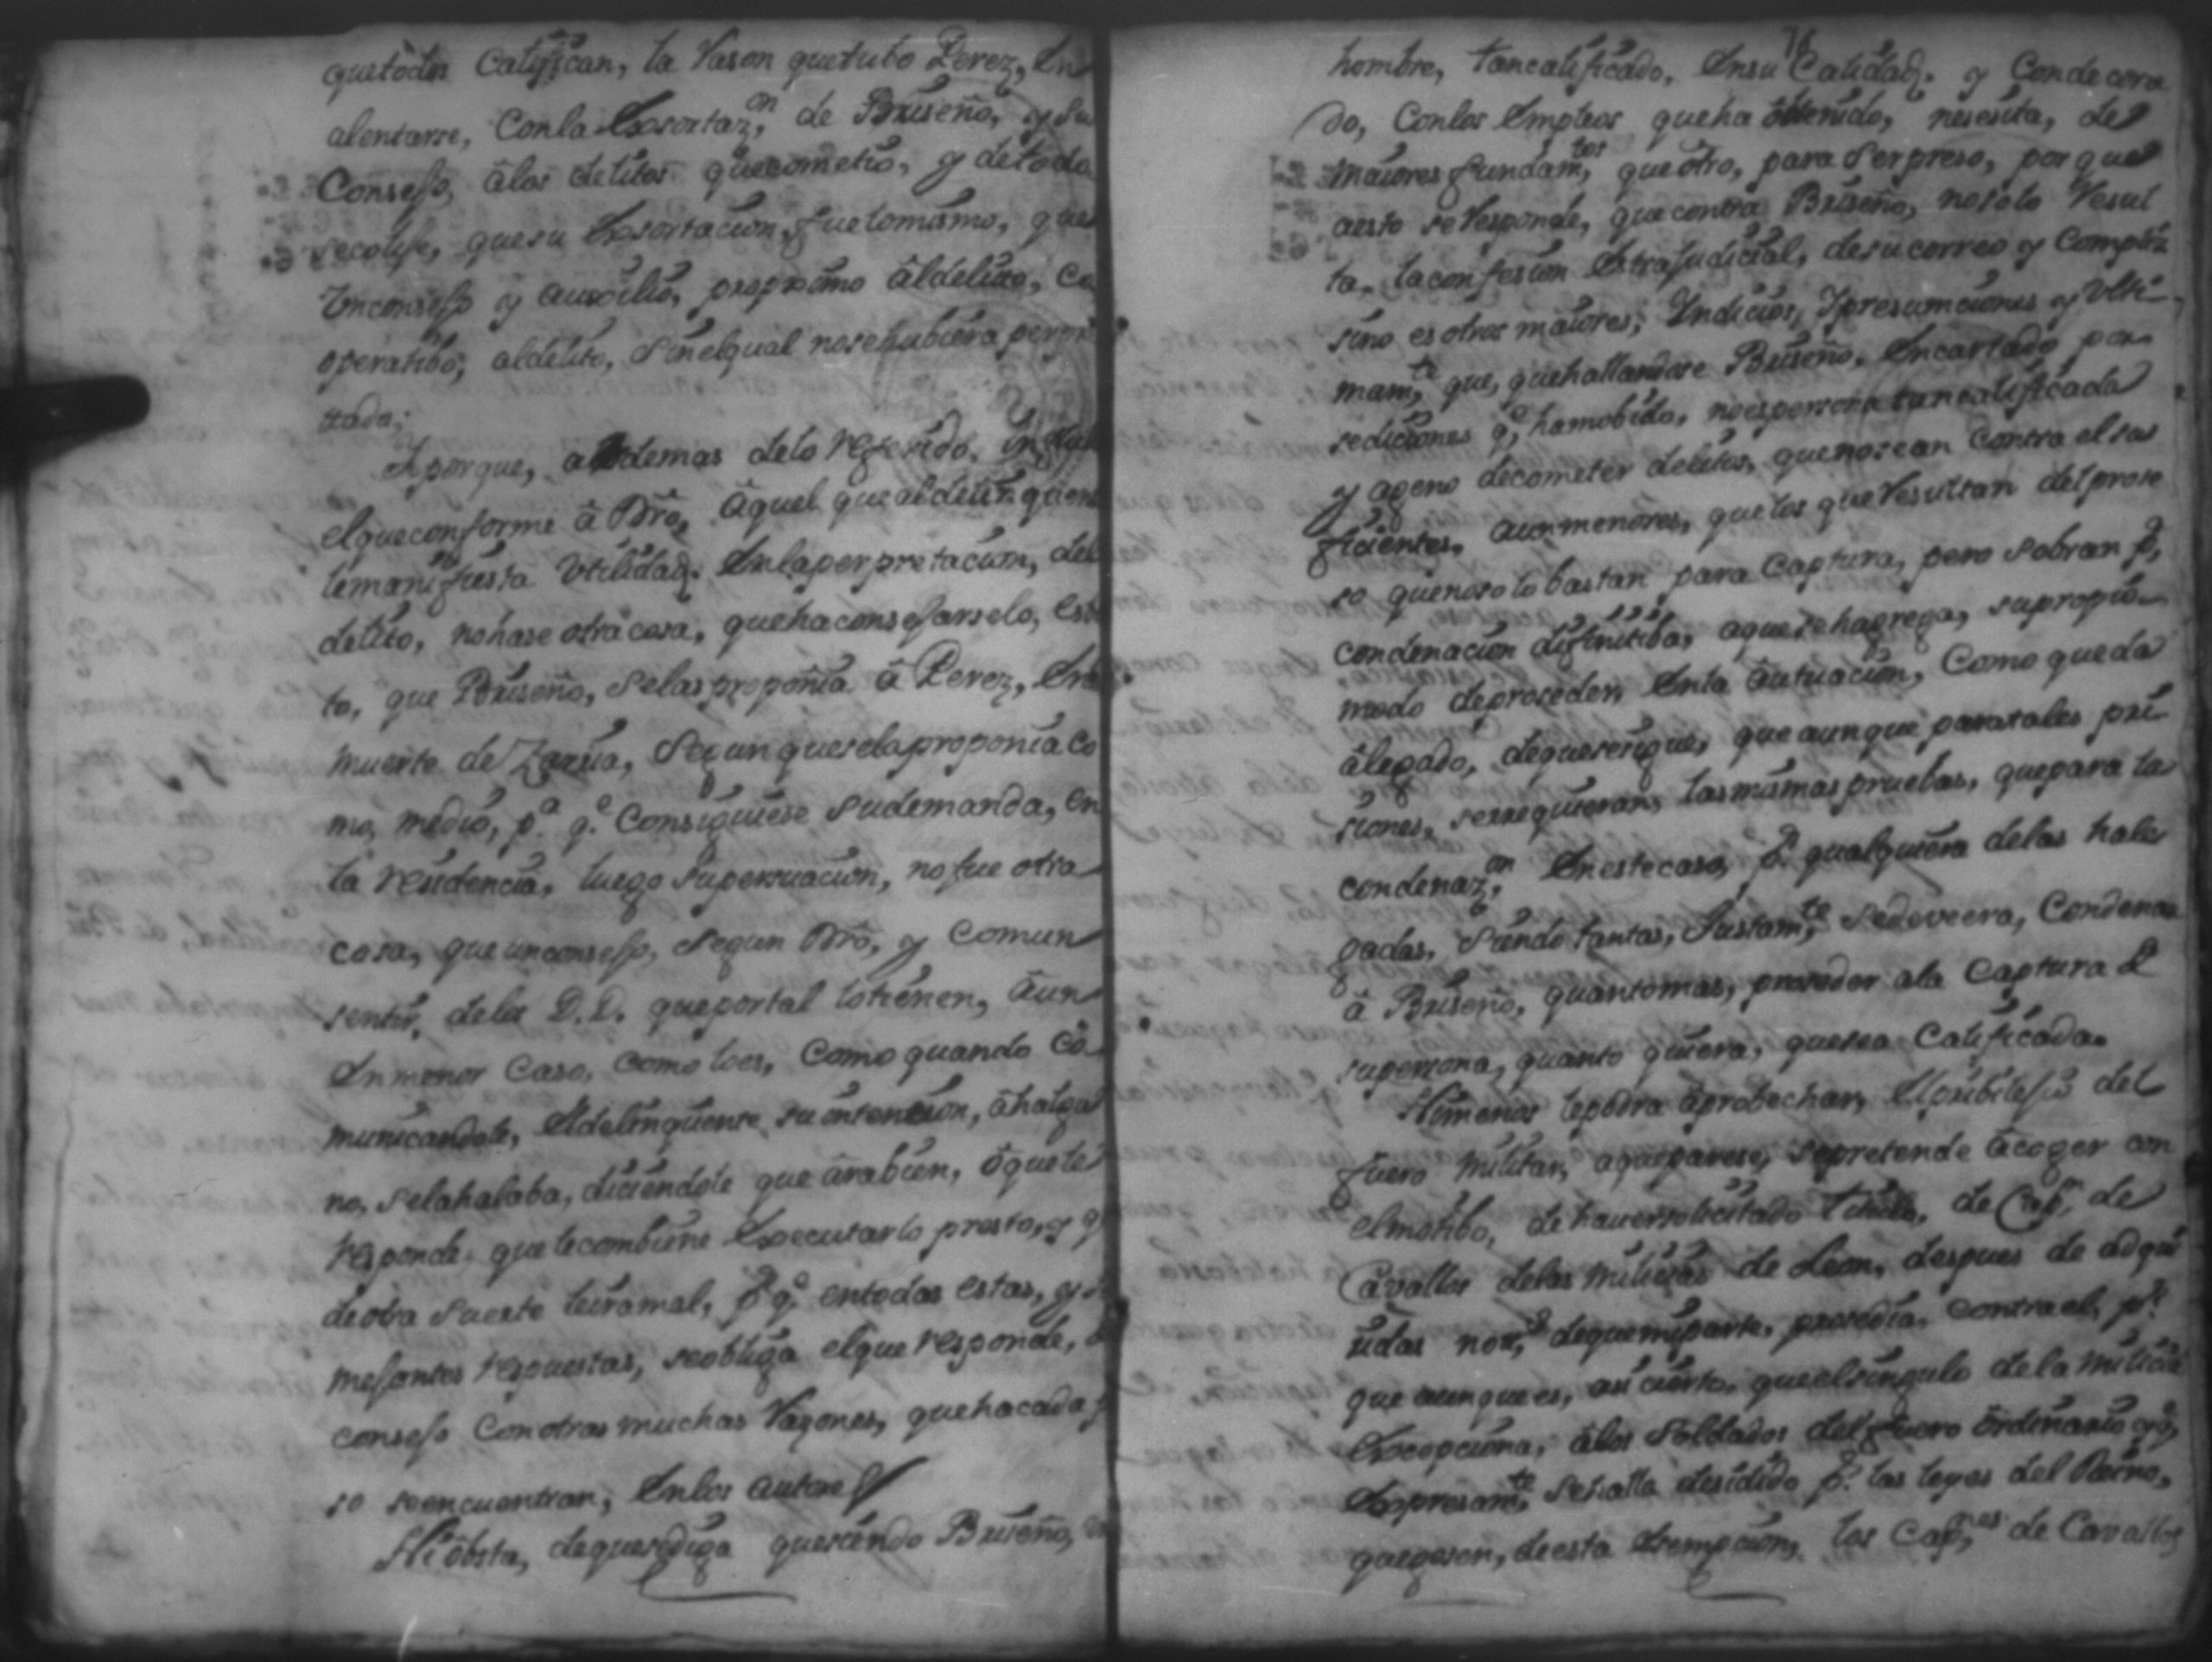 quetodos Califican, la Rason quetubo Perez, En
alentarse, Conla Exsortazon, de Briseño, y su
Consejo, âlos delitos quecometio, y detodo
secolije, quesu Exsortacion, fuelomismo, que
Vnconsejo y auxcilio, proprsimo âldelito, Co
operatibo, aldelito, Sinelqual nosehubiera perpre
ttado;
Y porque, ademas delo Referido,
elqueconforme â Dro, âquel que al delinquente
lemanifiesta Vtilidad. Enlaperpretacion, del
delito, nohase otra cosa, quehaconsejarselo, es
to, que Briseño, Selas proponia â Perez, En
muerte de Zarria, Segun queselaproponia Co
mo, medio, pa qe Consiguiese Sudemanda, en
la Residencia, luego Supersuacion, nofue otra
cosa, que unconsejo, Segun Dro, y Comun
sentir, delos D.D. queportal lotienen, âun
Enmenor Caso, Como loes, Como quando Co
municandole, Eldelinquente su intencion, âhalgu
no, Selahalaba, diciendole que ârabien, ôquele
Responde, quelecombiene Executarlo presto, y q
deotra Suerte leiramal, pr qe entodas estas, y se
mejantes Repuestas, seobliga elque Responde, de
consejo Conotras muchas Razones, quehacada pa
so seencuentran, Enlos autores
Ni ôbsta, dequesediga quesiendo Briseño, Vn
76
hombre, tancalificado, Ensu Calidad. y Condecora
do, Conlos Empleos queha ôbtenido, nesesita, de
maiores fundamtos, queôtro, para Serpreso, por que
aesto seResponde, quecontra Briseño, nosolo Resul
ta, laconfesion Extrajudicial, desucorreo y Complize
sino es otros maiores, Yndicios, Ypresumciones y Vlti
mamte, que, quehallandose Briseño, Encartado por
sediciones qe hamobido, noespersona tancalificada
y ageno decometer delitos, quenosean Contra el
ficientes, aunmenores, quelos queResultan delprose
so quenosolo bastan para Captura, pero Sobran pa
condenacion difinitiba, aquesehagrega, supropio
modo deproseder, Enla âutuacion, Como queda
âlegado, dequesesigue, que aunque paratales pri
siones, serrequieran, lasmismas pruebas, quepara la
condenazon, Enestecaso, pr qualquiera delas hale
gadas, Siendo tantas, Justamte Sedeveera, Condenar
â Briseño, quantomas, proseder ala Captura de
supersona, quanto quiera, quesea Calificada.
Nimenos lepodra âprobechar, Elpribilejio del
fuero Militar, aqueparese, Sepretende âcoger con
elmotibo, dehaversolicitado titulo, de Capn de
Cavallos delas Milicias de Leon, despues de adqui
ridas nota, dequemiparte, prosedia, Contrael, pr
que aunquees, asi cierto, queelsingulo dela Milicia
Excepciona, âlos Soldados del fuero ôrdinario yqe
Expresamte Sehalla desidido pr las leyes del Reino,
quegosen, deesta Exempcion, los Capnes de Cavallos